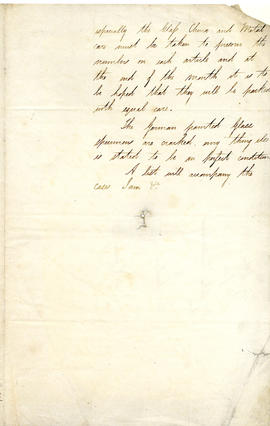 especially the Glass China and Metal
care must be taken to preserve the
numbers on each article and at
the end of the month it is to
be hoped that they will be packed
with equal care.
The German painted Glass
specimens are cracked, any thing else
is stated to be in perfect condition
A list will accompany the
cases I am &c